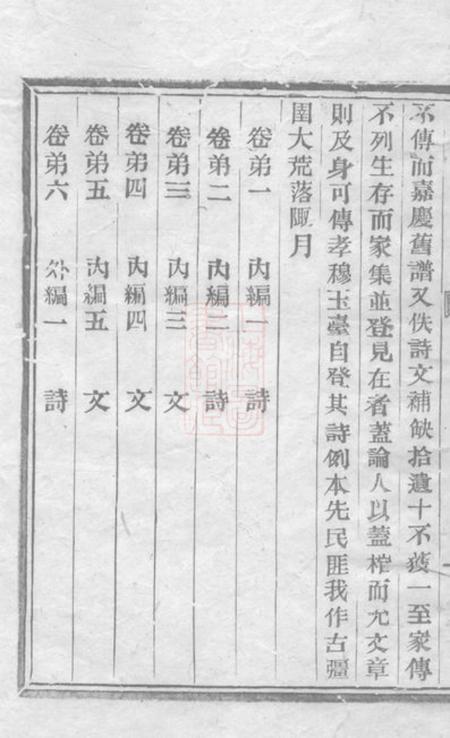 不傳而嘉慶舊譜又佚詩文補缺拾遺十不䕶一至家傳
不列生存而家集並登見在者蓋論人以蓋棺而允文章
則及身可傳孝穆玉臺自登其詩例本先民匪我作古彊
圉大荒落陬月
卷弟一 內編一 詩
卷弟二 內編二 詩
卷弟三 內編三 文
卷弟四 內編四 文
卷弟五 內編五 文
卷弟六 外編一 詩